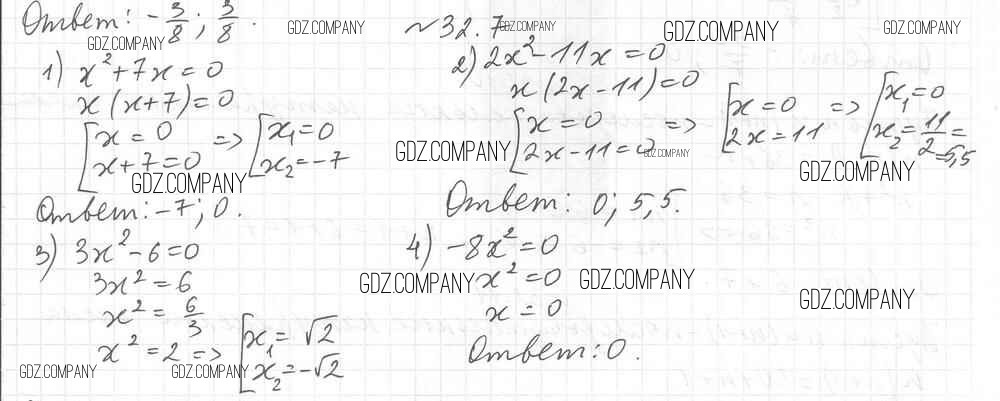 Ответ: -3/8; 3/8.
№32.7
1) x² + 7x = 0
x(x+7) = 0
[x = 0 => [x₁ = 0
x+7 = 0 x₂ = -7
Ответ: -7; 0.
2) 2x² - 11x = 0
x(2x-11) = 0
[x = 0 => [x = 0 => [x₁ = 0
2x-11 = 0 2x = 11 x₂ = 11/2 = 5,5
Ответ: 0; 5,5.
3) 3x² - 6 = 0
3x² = 6
x² = 6/3
x² = 2 => [x₁ = √2
x₂ = -√2
4) -8x² = 0
x² = 0
x = 0
Ответ: 0.
GDZ.COMPANY
GDZ.COMPANY
GDZ.COMPANY
GDZ.COMPANY
GDZ.COMPANY
GDZ.COMPANY
GDZ.COMPANY
GDZ.COMPANY
GDZ.COMPANY
GDZ.COMPANY
GDZ.COMPANY
GDZ.COMPANY
GDZ.COMPANY
GDZ.COMPANY